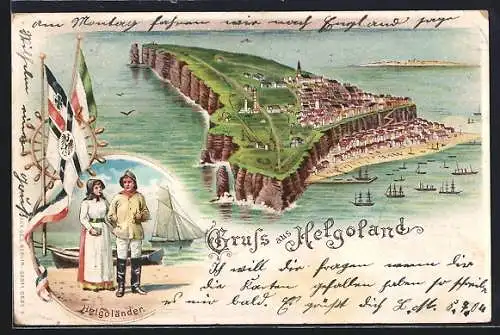 am Montag fahren wir nach England sage
Wilhelm und
Gruss aus Helgoland
Helgoländer.
Ich will dir fragen wenn dir
die Karten gefallen haben so schreibe
es mir bald. Es grüßt dich